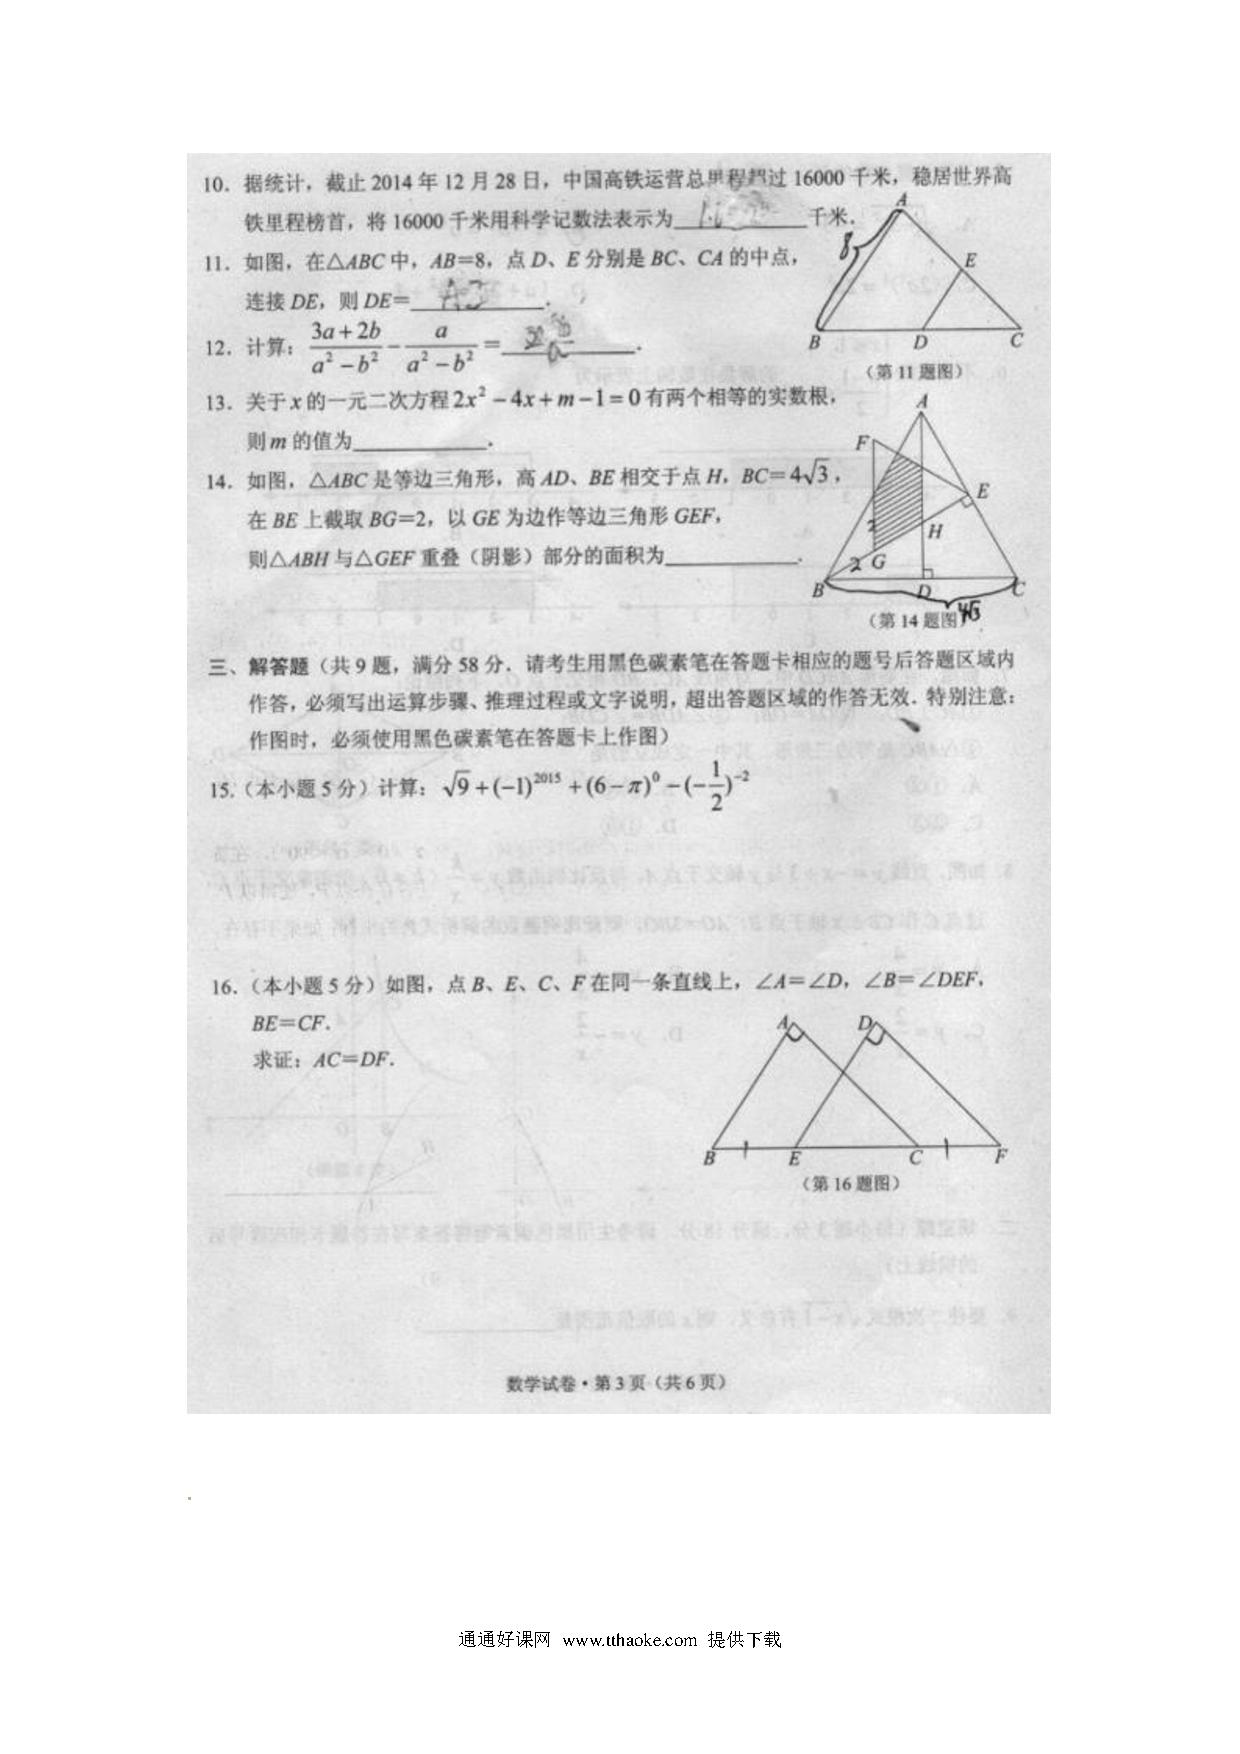 10. 据统计，截止 2014 年 12 月 28 日，中国高铁运营总里程超过 16000 千米，稳居世界高
铁里程榜首，将 16000 千米用科学记数法表示为____________千米.
11. 如图，在△ABC 中，AB=8，点 D、E 分别是 BC、CA 的中点，
连接 DE，则 DE=____________.
A
8
E
B D C
(第 11 题图)
12. 计算：\frac{3a+2b}{a²-b²} - \frac{a}{a²-b²} = ____________.
13. 关于 x 的一元二次方程 2x² - 4x + m - 1 = 0 有两个相等的实数根，
则 m 的值为____________.
14. 如图，△ABC 是等边三角形，高 AD、BE 相交于点 H，BC=4√3，
在 BE 上截取 BG=2，以 GE 为边作等边三角形 GEF，
则△ABH 与△GEF 重叠（阴影）部分的面积为____________.
A
F
E
2
H
2 G
B D C
4√3
(第 14 题图)
三、解答题（共 9 题，满分 58 分. 请考生用黑色碳素笔在答题卡相应的题号后答题区域内
作答，必须写出运算步骤、推理过程或文字说明，超出答题区域的作答无效. 特别注意：
作图时，必须使用黑色碳素笔在答题卡上作图）
15.（本小题 5 分）计算：√9 + (-1)²⁰¹⁵ + (6-π)⁰ - (-\frac{1}{2})⁻²
16.（本小题 5 分）如图，点 B、E、C、F 在同一条直线上，∠A=∠D，∠B=∠DEF，
BE=CF.
求证：AC=DF.
A D
B E C F
(第 16 题图)
数学试卷·第 3 页（共 6 页）
通通好课网 www.tthaoke.com 提供下载